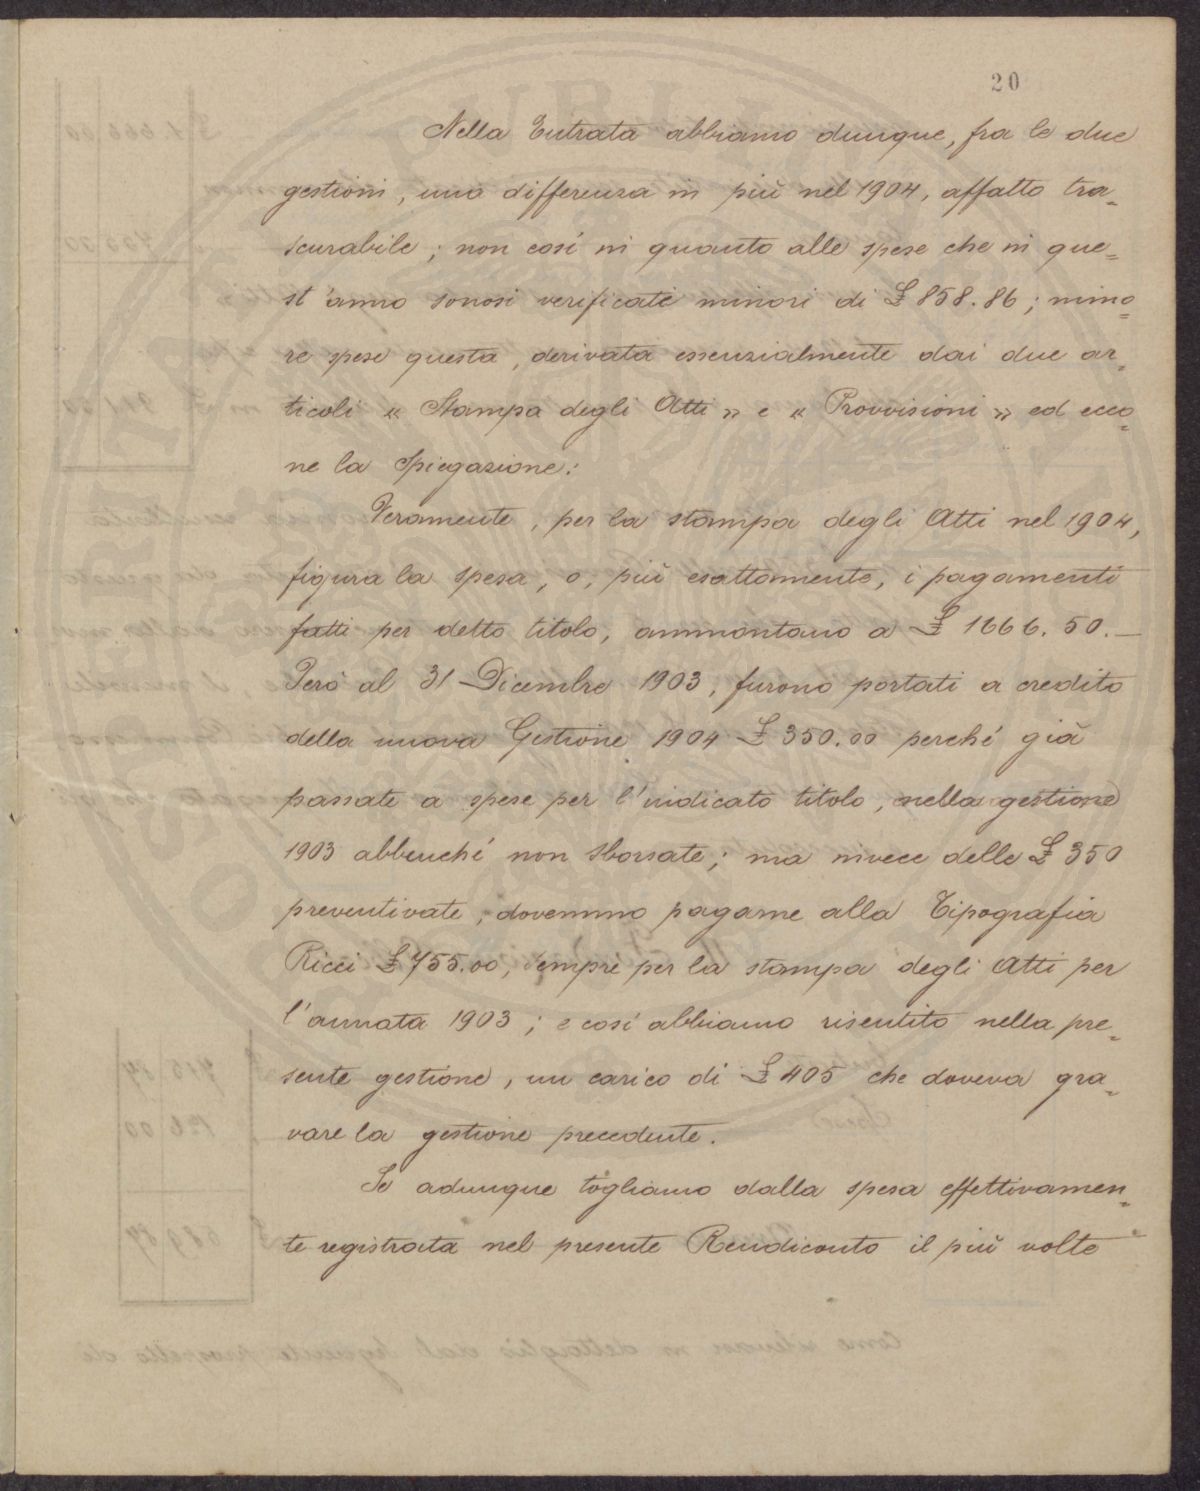 20
Nella Entrata abbiamo dunque, fra le due
gestioni, una differenza in più nel 1904, affatto tra=
scurabile; non così in quanto alle spese che in que=
st'anno sonosi verificate minori di £ 858.86; mino=
re spese questa, derivata essenzialmente dai due ar=
ticoli « Stampa degli Atti » e « Provvisioni » ed ecco=
ne la spiegazione:
Veramente, per la stampa degli Atti nel 1904,
figura la spesa, o, più esattamente, i pagamenti
fatti per detto titolo, ammontano a £ 1666.50.—
Però al 31 Dicembre 1903, furono portati a credito
della nuova Gestione 1904 £ 350.00 perché già
passate a spese per l'indicato titolo, nella gestione
1903 abbenché non sborsate; ma invece delle £ 350
preventivate, dovemmo pagarne alla Tipografia
Ricci £ 755.00, sempre per la stampa degli Atti per
l'annata 1903; e così abbiamo risentito nella pre=
sente gestione, un carico di £ 405 che doveva gra=
vare la gestione precedente.
Se adunque togliamo dalla spesa effettivamen=
te registrata nel presente Rendiconto il più volte